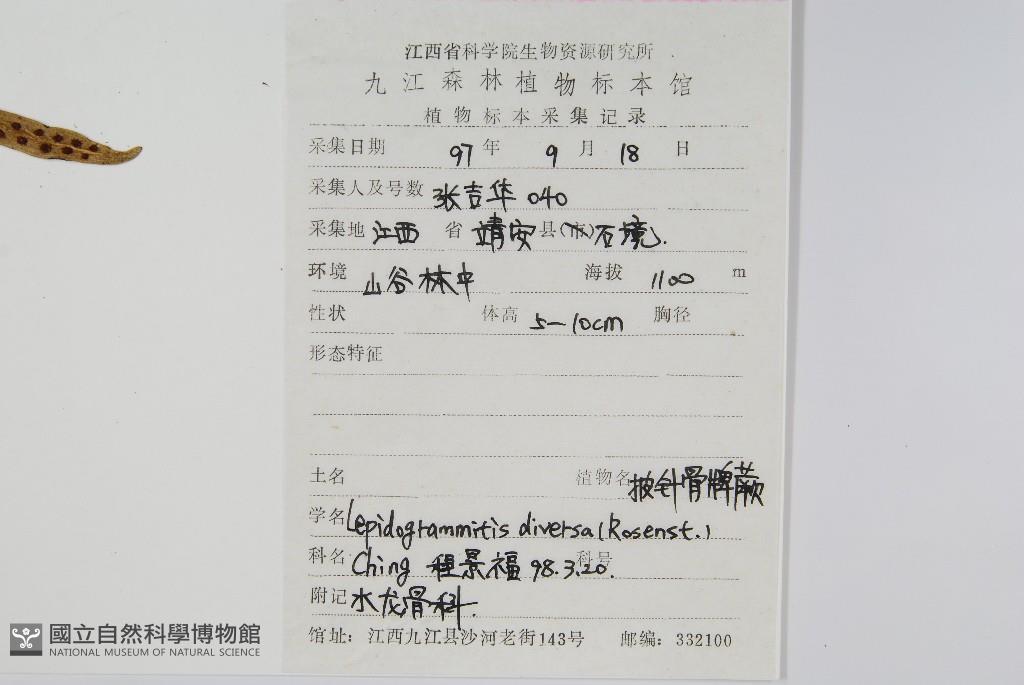 江西省科学院生物资源研究所
九江森林植物标本馆
植物标本采集记录
采集日期 97 年 9 月 18 日
采集人及号数 张吉华 040
采集地 江西 省 靖安 县(市) 石境.
环境 山谷林中 海拔 1100 m
性状 体高 5—10cm 胸径
形态特征
土名 植物名 披针骨牌蕨
学名 Lepidogrammitis diversa (Rosenst.)
科名 Ching 程景福 98.3.20. 科号
附记 水龙骨科.
馆址: 江西九江县沙河老街143号 邮编: 332100
國立自然科學博物館
NATIONAL MUSEUM OF NATURAL SCIENCE